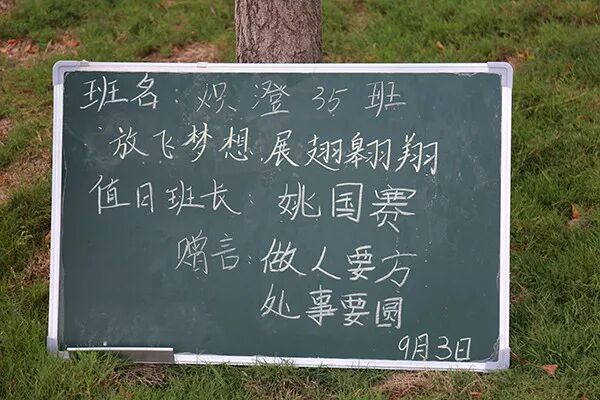 班名：炽澄35班
放飞梦想.展翅翱翔
值日班长：姚国赛
赠言：做人要方
处事要圆
9月3日